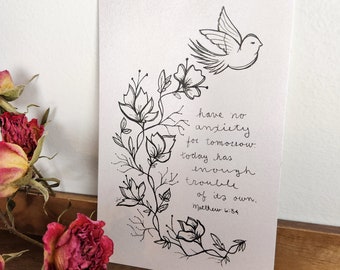 have no
anxiety
for tomorrow
today has
enough
trouble
of its own.
Matthew 6:34